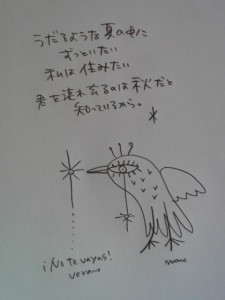 うだるような夏の中に
ずっといたい
私は住みたい
君を連れ去るのは秋だと
知っているから。
¡No te vayas!
verano